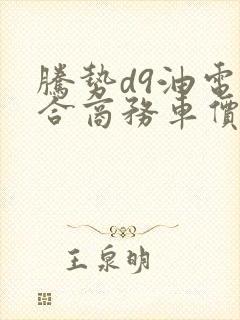 騰勢d9油電
合商務車價
王泉明